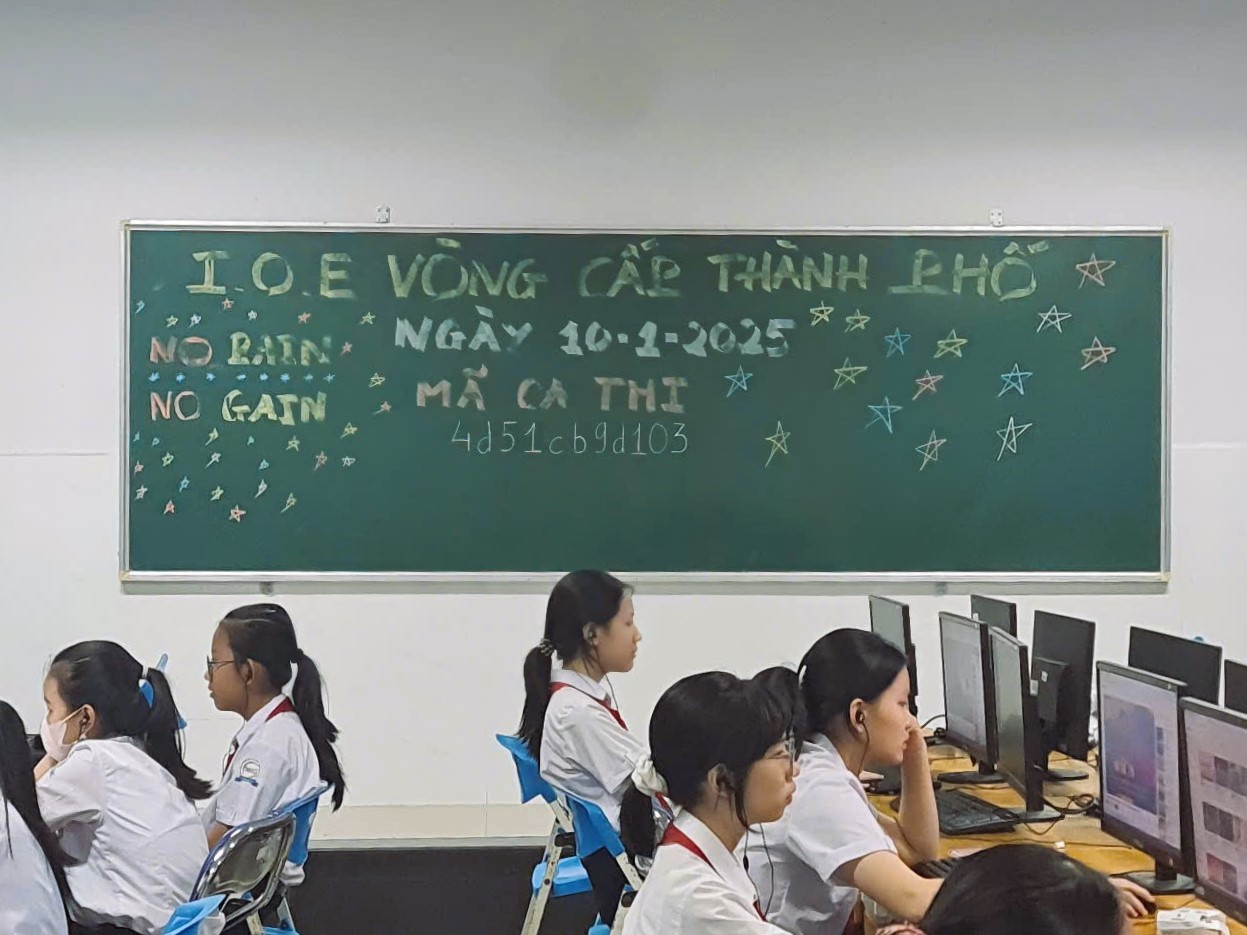 I.O.E VÒNG CẤP THÀNH PHỐ
NGÀY 10-1-2025
MÃ CA THI
4d51cb9d103
NO PAIN
NO GAIN